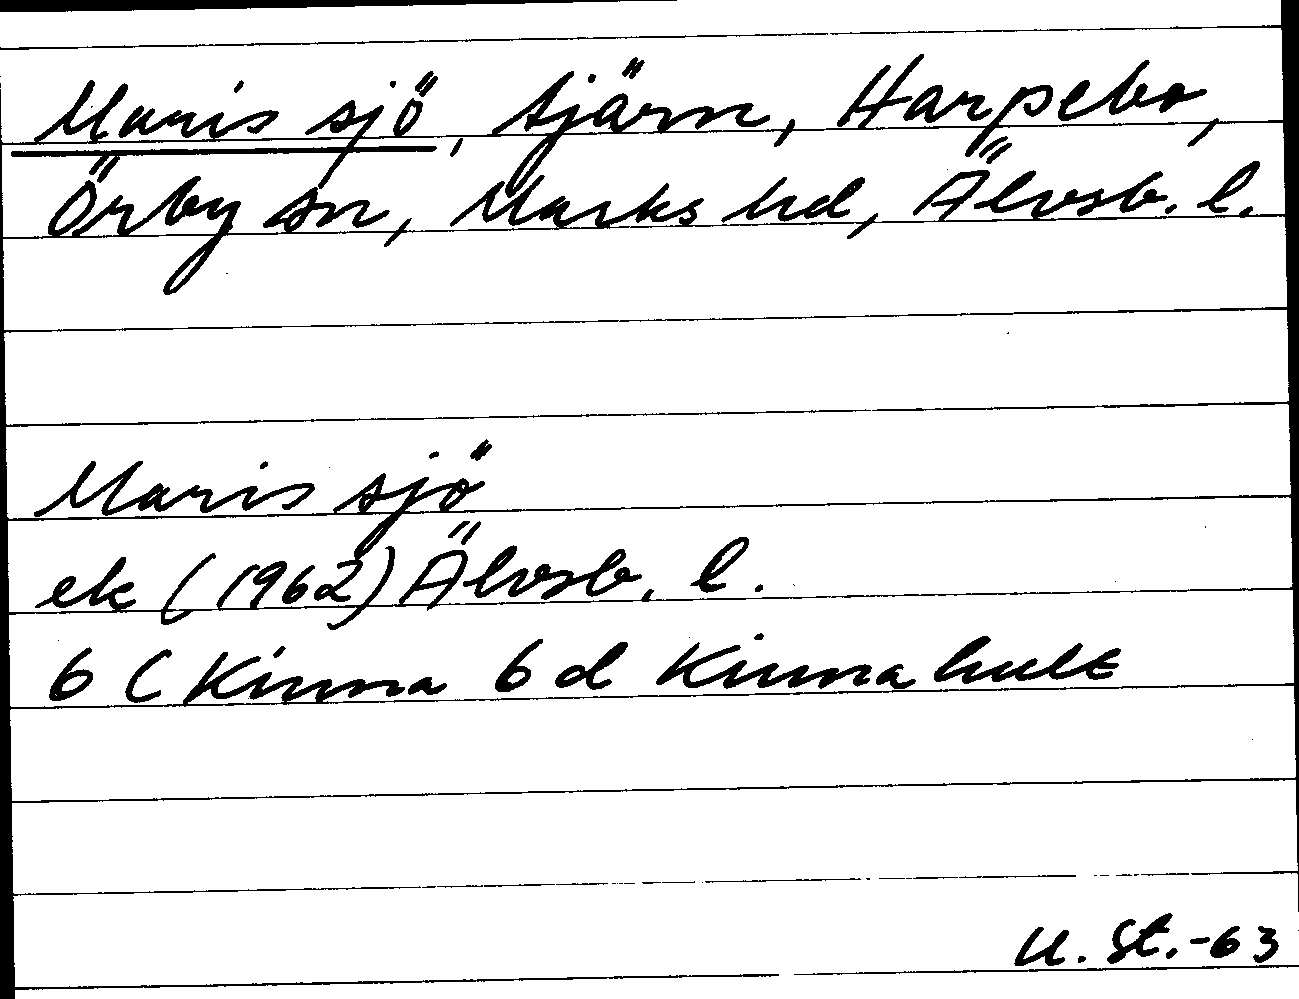 Maris sjö, tjärn, Harpebo,
Örby sn, Marks hd, Älvsb. l.
Maris sjö
ek (1962) Älvsb. l.
6 C Kinna 6 d Kinnahult
U. St.-63